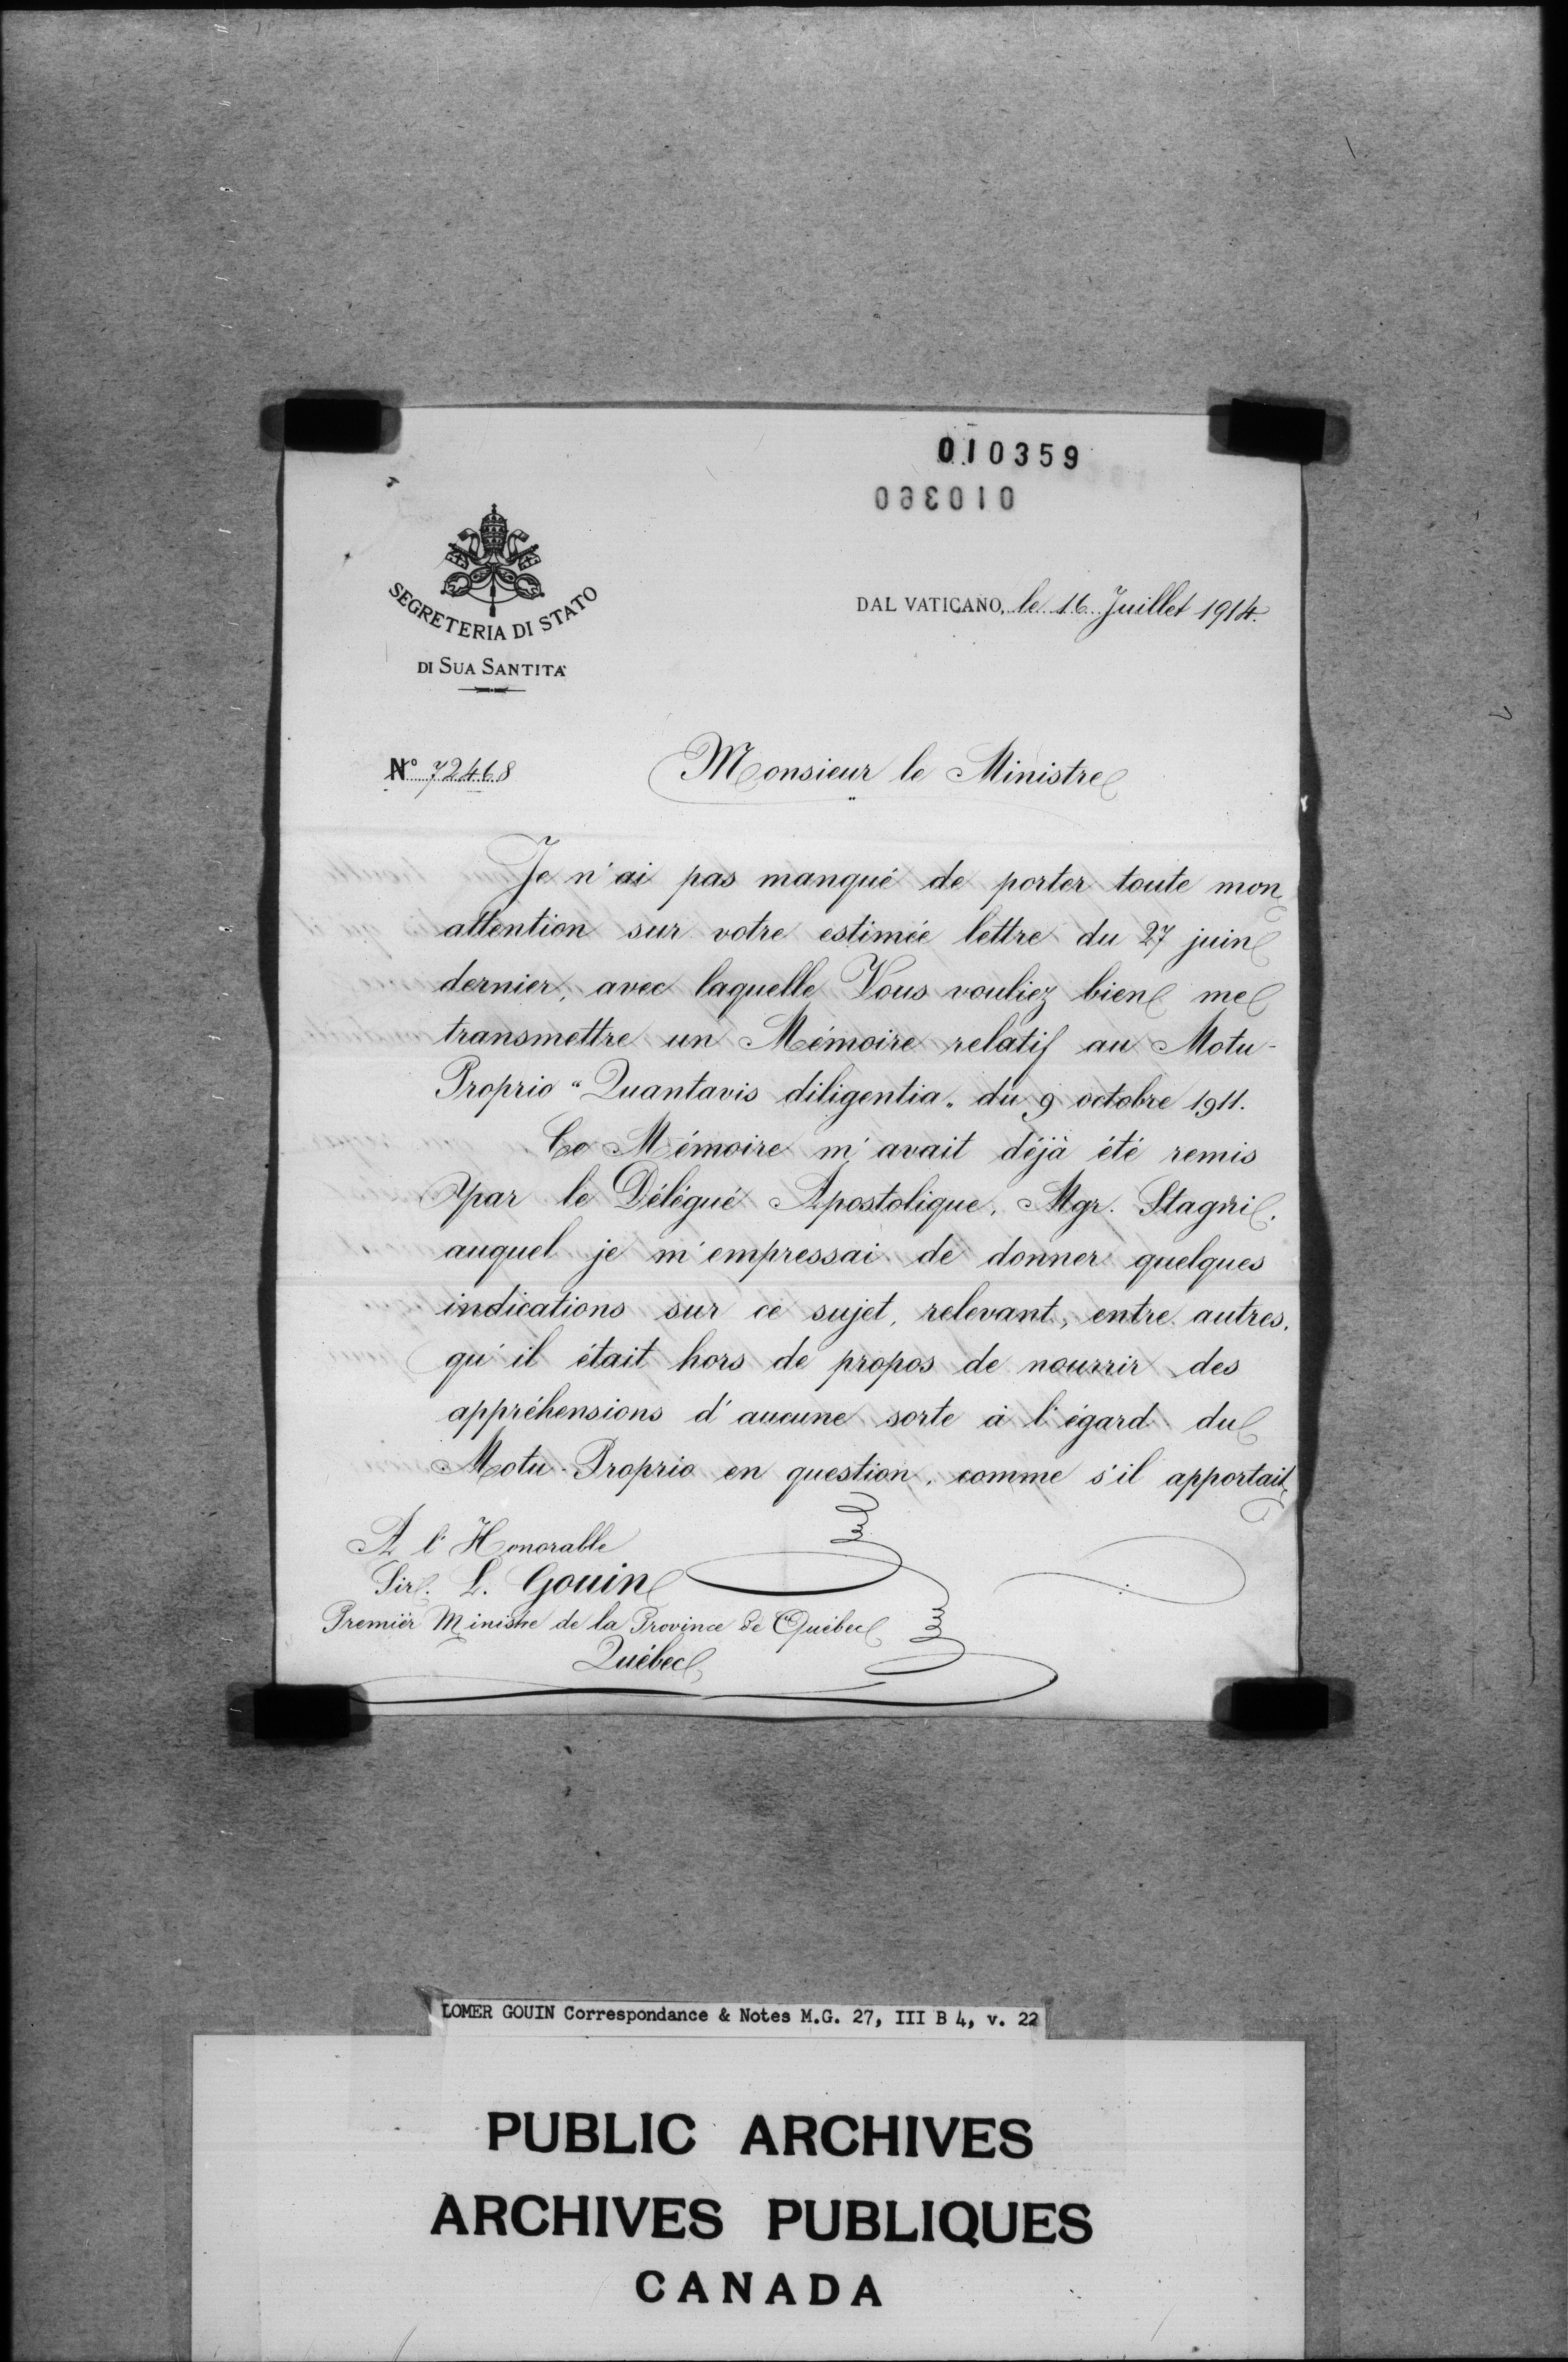 010359
010360
SEGRETERIA DI STATO
DI SUA SANTITA'
DAL VATICANO, le 16 Juillet 1914.
N° 72468
Monsieur le Ministre
Je n'ai pas manqué de porter toute mon
attention sur votre estimée lettre du 27 juin
dernier, avec laquelle Vous vouliez bien me
transmettre un Mémoire relatif au Motu-
Proprio "Quantavis diligentia" du 9 octobre 1911.
Ce Mémoire m'avait déjà été remis
par le Délégué Apostolique, Mgr. Stagni,
auquel je m'empressai de donner quelques
indications sur ce sujet, relevant, entre autres,
qu'il était hors de propos de nourrir des
appréhensions d'aucune sorte à l'égard du
Motu-Proprio en question, comme s'il apportait
A l'Honorable
Sir. L. Gouin
Premier Ministre de la Province de Québec
Québec
LOMER GOUIN Correspondance & Notes M.G. 27, III B 4, v. 22
PUBLIC ARCHIVES
ARCHIVES PUBLIQUES
CANADA